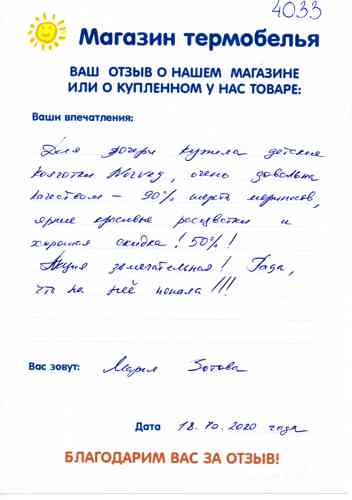 4033
Магазин термобелья
ВАШ ОТЗЫВ О НАШЕМ МАГАЗИНЕ
ИЛИ О КУПЛЕННОМ У НАС ТОВАРЕ:
Ваши впечатления:
Для дочери купила детские
колготки Norveg, очень довольна
качеством – 90% шерсть мериносов,
яркие красивые расцветки и
хорошая скидка! 50%!
Акция замечательная! Рада,
что на неё попала!!!
Вас зовут: Мария Зотова
Дата 18.10.2020 года
БЛАГОДАРИМ ВАС ЗА ОТЗЫВ!